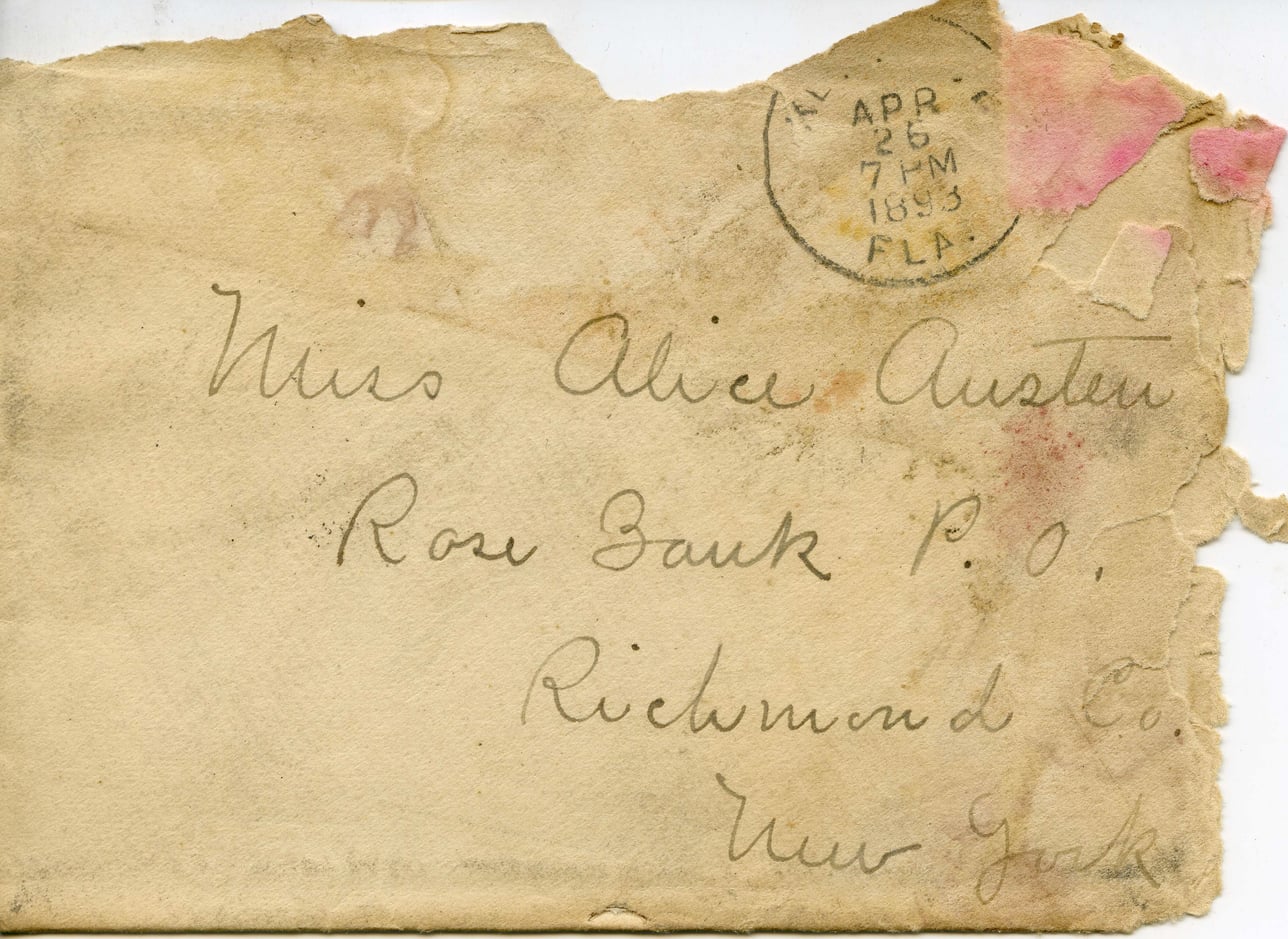 APR
26
7 PM
1893
FLA.
Miss Alice Austen
Rose Bank P. O.
Richmond Co.
New York